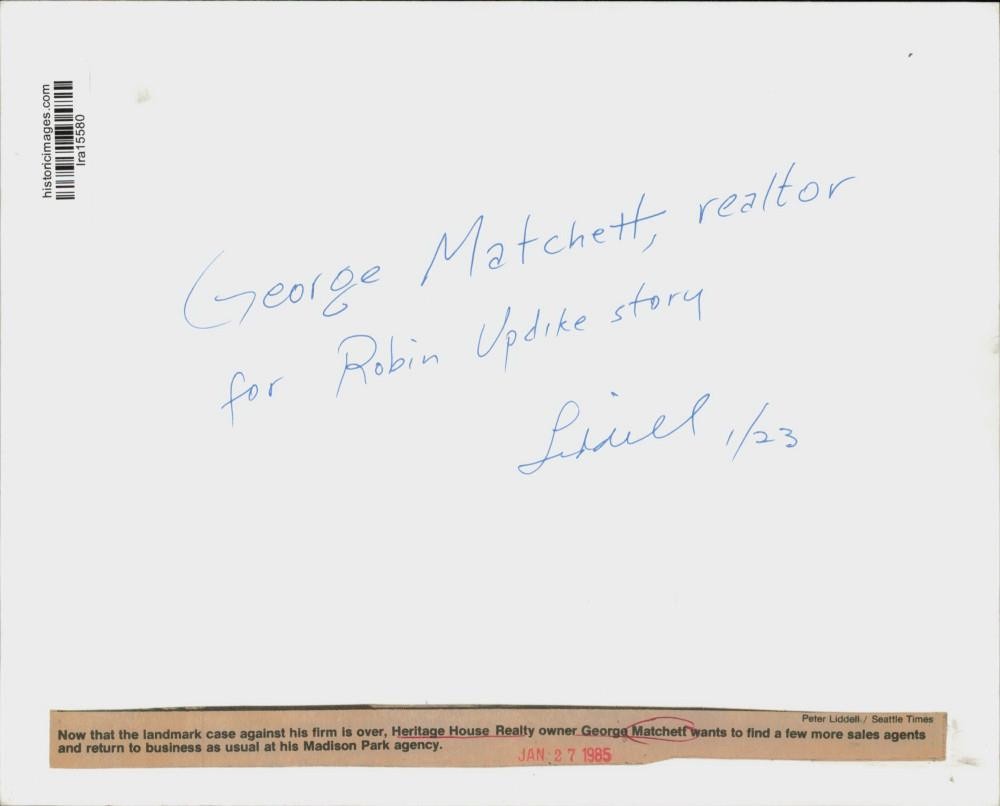 historicimages.com
lra15580
George Matchett, realtor
for Robin Updike story
Liddell 1/23
Peter Liddell / Seattle Times
Now that the landmark case against his firm is over, Heritage House Realty owner George Matchett wants to find a few more sales agents
and return to business as usual at his Madison Park agency.
JAN 27 1985